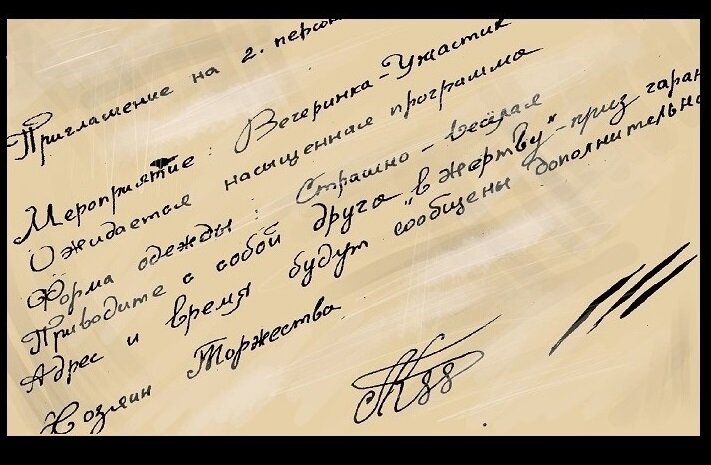 Приглашение на 2. персон
Мероприятие: Вечеринка-Ужастик
Ожидается насыщенная программа
Форма одежды: Страшно-весёлая
Приводите с собой друга "в жертву"-приз гаран
Адрес и время будут сообщены дополнительно
Хозяин Торжества